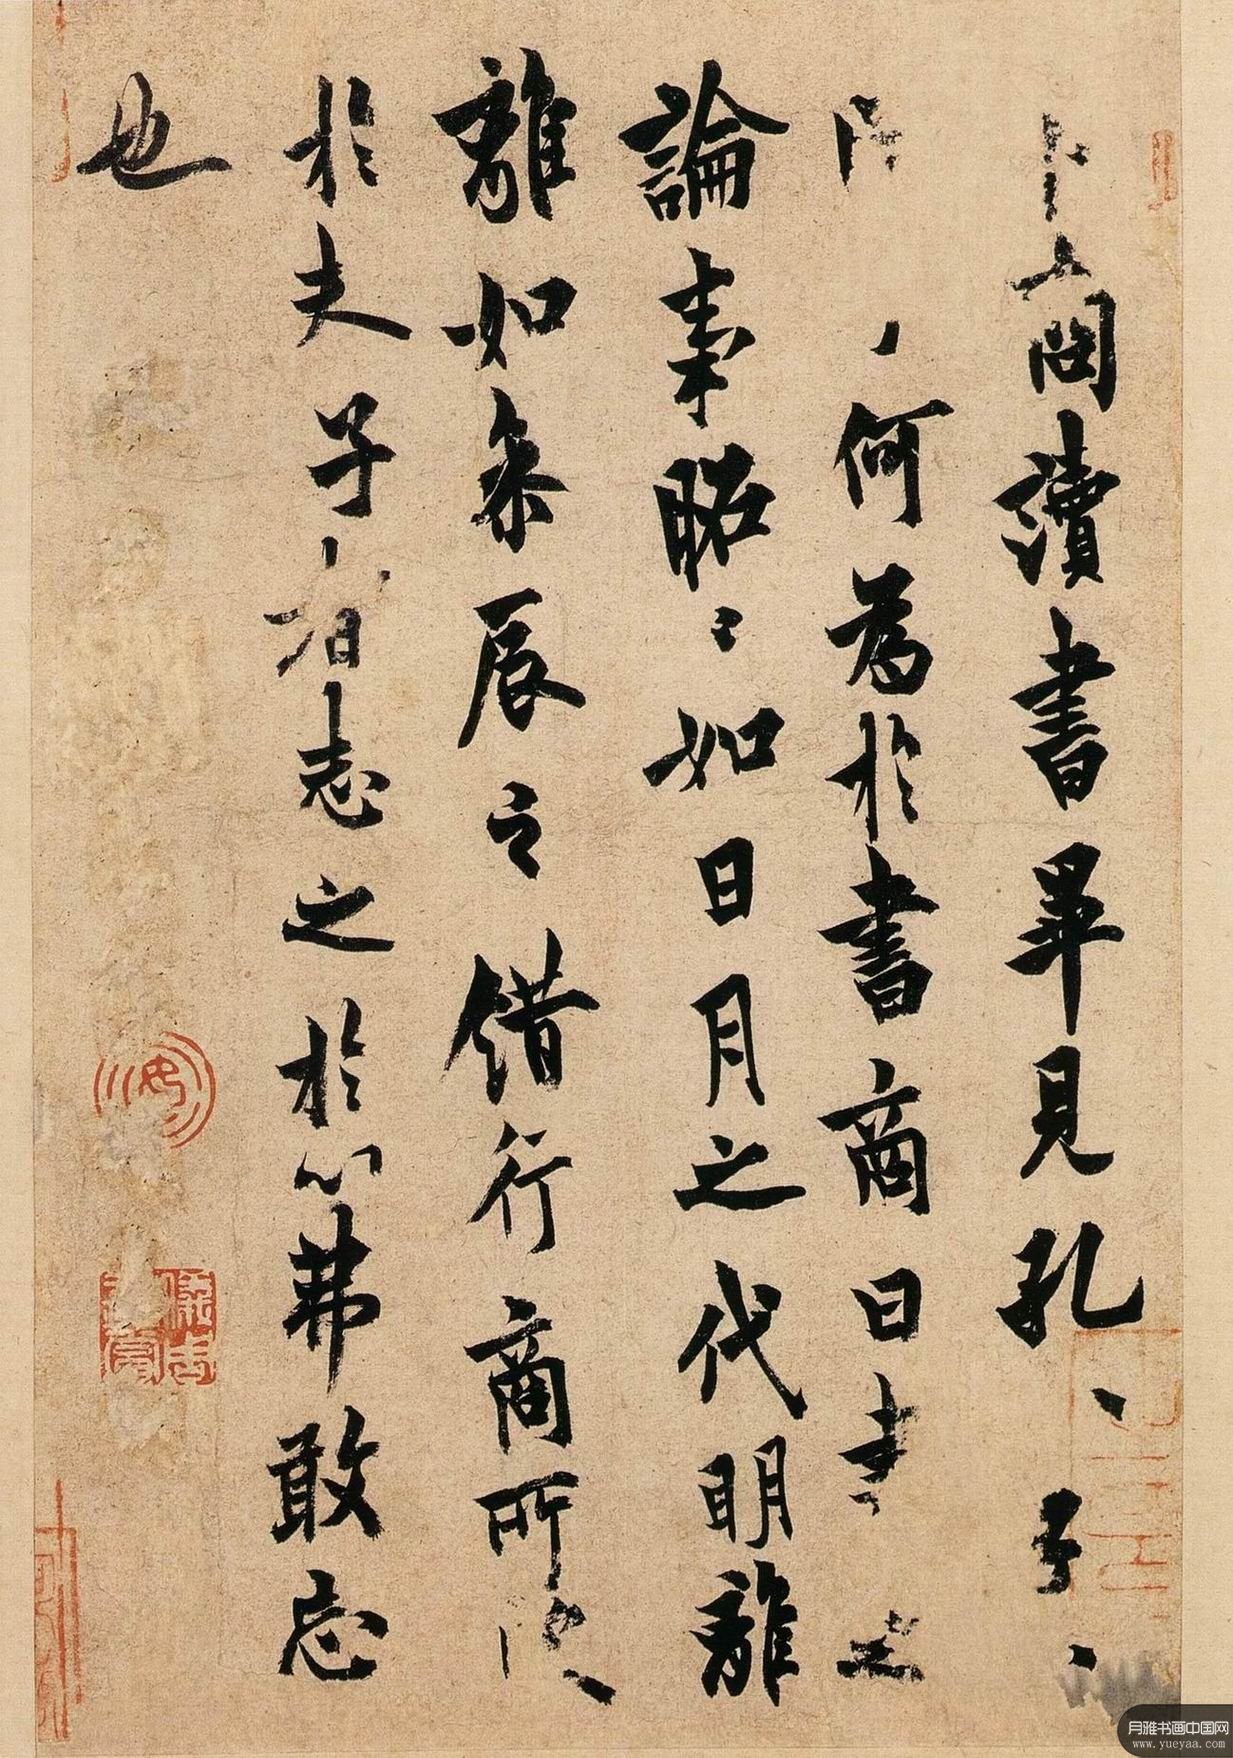 卜商讀書畢見孔子
何為於書商曰書之
論事昭〻如日月之代明離
離如參辰之錯行商所
於夫子者志之於心弗敢忘
也
月雅书画中国网
www.yueyaa.com